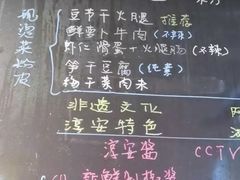 现烫米粉皮
豆节干火腿 推荐
鲜萝卜牛肉 (不辣)
虾仁滑蛋+火腿肠 (不辣)
笋干豆腐 (纯素)
梅干菜肉末
非遗文化
淳安特色
淳安酱 CCTV